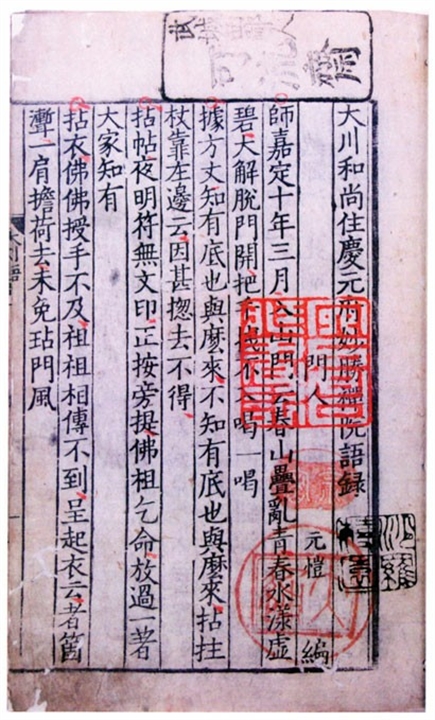 大川和尚住慶元府妙勝禪院語録
門人　元愷　編
師嘉定十年三月入山門云春山疊亂青春水漾虛
碧大解脫門開把手拽不入喝一喝
據方丈知有底也與麼來不知有底也與麼來拈拄
杖靠左邊云因甚揔去不得
拈帖夜明符無文印正按旁提佛祖乞命放過一著
大家知有
拈衣佛佛授手不及祖祖相傳不到呈起衣云者箇
一肩擔荷去未免玷門風